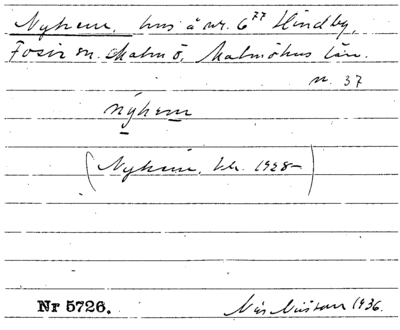 Nyhem, hus å nr. 6⁷⁷ Hindby,
Fosie sn. Malmö, Malmöhus län.
n. 37
nỳhem
(Nyhem, kk. 1928–)
Nr 5726. Nils 1936.